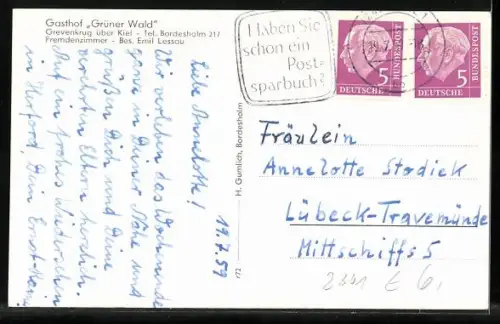 Gasthof „Grüner Wald"
Grevenkrug über Kiel - Tel. Bordesholm 217
Fremdenzimmer - Bes. Emil Lessau
19.7.59
Liebe Annelotte!
Wir verleben das Wochenende
grade in Deiner Nähe und
grüßen Dich und Deine
verehrten Eltern herzlich.
Auf ein frohes Wiedersehen
in Herford, Dein
H. Gumlich, Bordesholm
172
Haben Sie
schon ein
Post-
sparbuch?
5
DEUTSCHE
BUNDESPOST
5
DEUTSCHE
BUNDESPOST
Fräulein
Annelotte Stodiek
Lübeck-Travemünde
Mittschiffs 5